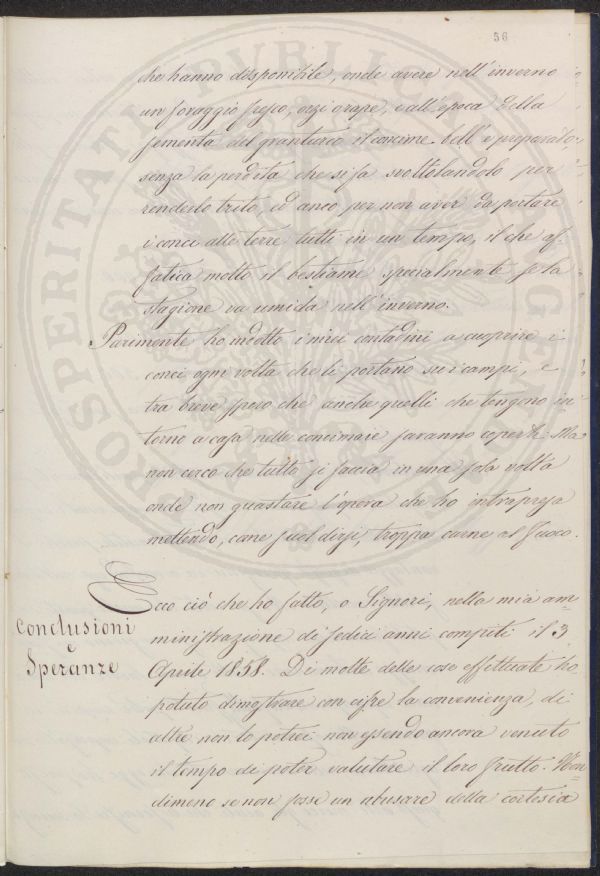 56
che hanno disponibile, onde avere nell'inverno
un foraggio fresco, orzi orape, e all'epoca della
sementa del granturco il concime bell'e preparato,
senza la perdita che si fa svoltolandolo per
renderlo trito, ed anco per non aver da portare
i conci alle terre tutti in un tempo, il che af=
fatica molto il bestiame specialmente se la
stagione va umida nell'inverno.
Parimente ho indotto i miei contadini a cuoprire i
conci ogni volta che li portano su i campi, e
tra breve spero che anche quelli che tengono in=
torno a casa nelle concimaie saranno coperti. Ma
non cerco che tutto si faccia in una sola volta
onde non guastare l'opera che ho intrapresa
mettendo, come suol dirsi, troppa carne al fuoco.
Conclusioni
e
Speranze
Ecco ciò che ho fatto, o Signori, nella mia am=
ministrazione di sedici anni compiti il 3
Aprile 1858. Di molte delle cose effettuate ho
potuto dimostrare con cifre la convenienza, di
altre non lo potrei non essendo ancora venuto
il tempo di poter valutare il loro frutto. Non=
dimeno se non fosse un abusare della cortesia
PROSPERITATI PUBLICAE AUGENDAE